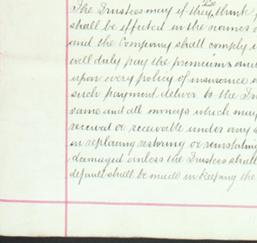 The Trustees may if they think
shall be effected in the names o
and the Company shall comply i
will duly pay the premiums and
upon every policy of insurance
such payment deliver to the Tr
same and all moneys which may
received or receivable under any
in replacing restoring or reinstating
damaged unless the Trustees shall
default shall be made in keeping the